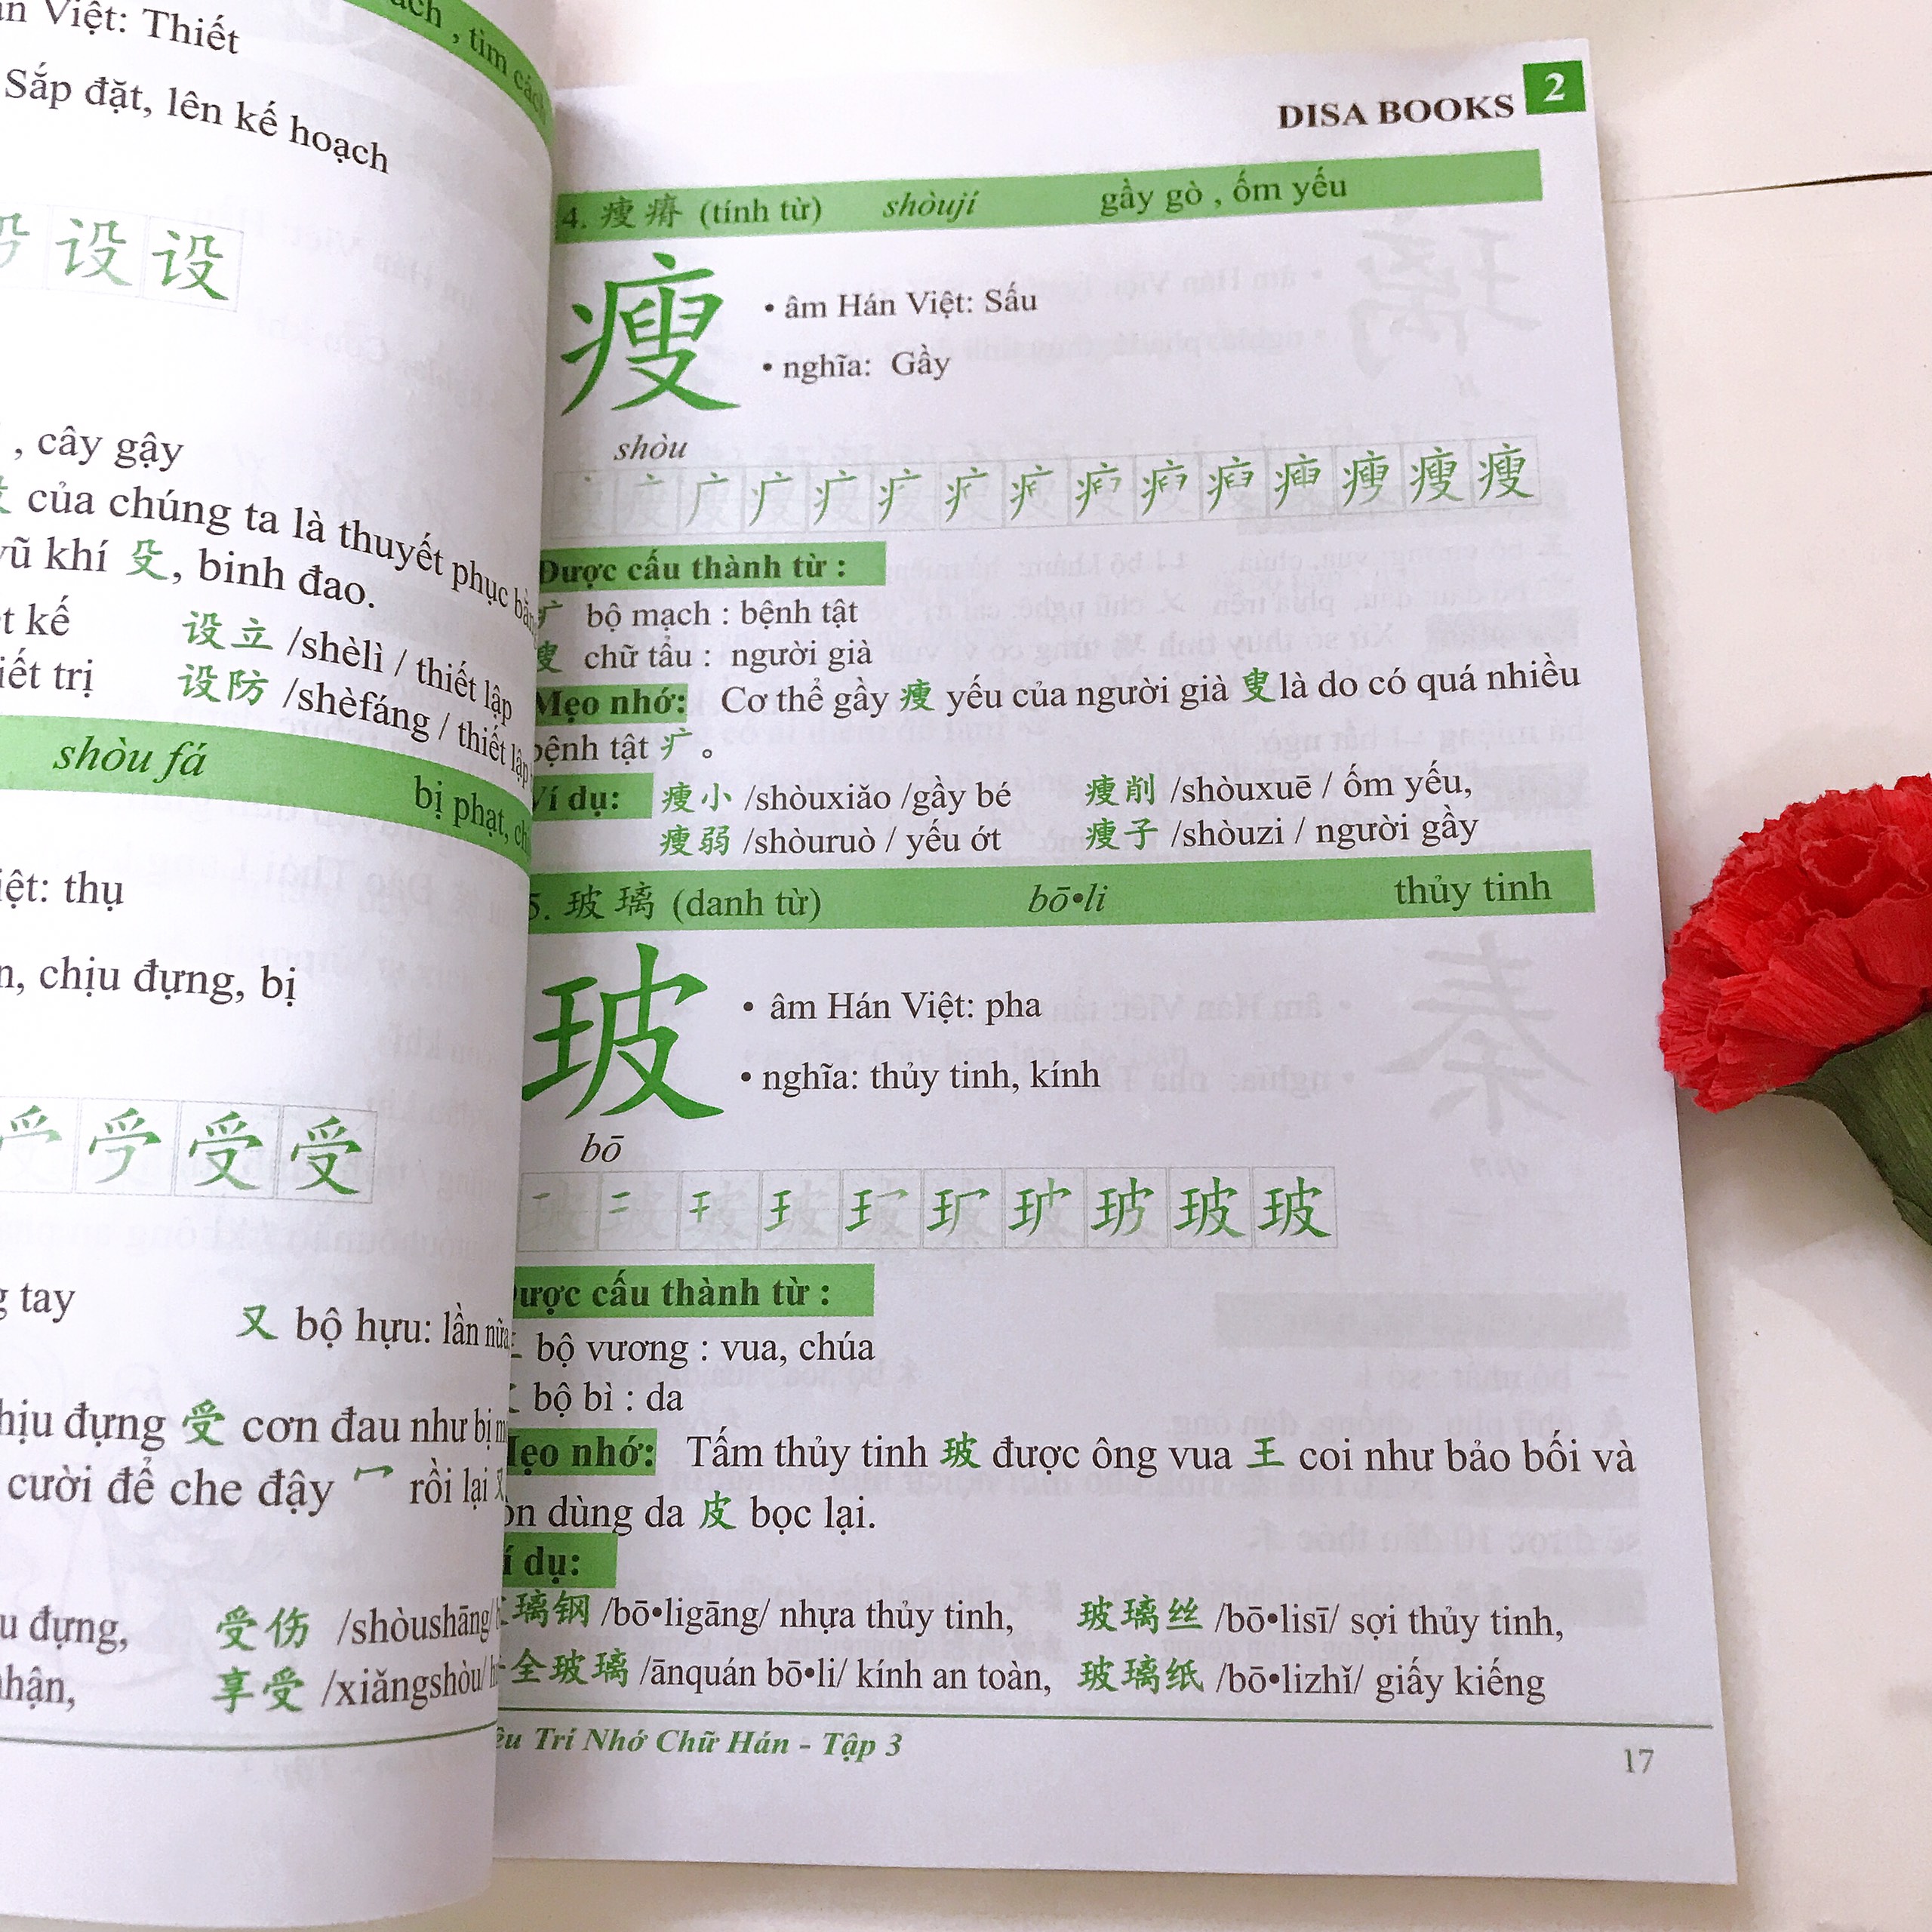 Việt: Thiết
Sắp đặt, lên kế hoạch
, tìm cách
设 设
, cây gậy
của chúng ta là thuyết phục
vũ khí 殳, binh đao.
kế 设立 /shèlì / thiết lập
trị 设防 /shèfáng / thiết lập
shòu fá bị phạt,
thụ
, chịu đựng, bị
受 受
tay
又 bộ hựu: lần nữa
chịu đựng 受 cơn đau như bị
cười để che đậy 冖 rồi lại
đựng, 受伤 /shòushāng/
nhận, 享受 /xiǎngshòu/
DISA BOOKS 2
4. 瘦瘠 (tính từ) shòují gầy gò , ốm yếu
瘦
• âm Hán Việt: Sấu
• nghĩa: Gầy
shòu
瘦 瘦
Được cấu thành từ :
疒 bộ mạch : bệnh tật
叟 chữ tẩu : người già
Mẹo nhớ: Cơ thể gầy 瘦 yếu của người già 叟 là do có quá nhiều
bệnh tật 疒。
Ví dụ: 瘦小 /shòuxiǎo /gầy bé 瘦削 /shòuxuē / ốm yếu,
瘦弱 /shòuruò / yếu ớt 瘦子 /shòuzi / người gầy
5. 玻璃 (danh từ) bō•li thủy tinh
玻
• âm Hán Việt: pha
• nghĩa: thủy tinh, kính
bō
玻 玻
Được cấu thành từ :
bộ vương : vua, chúa
bộ bì : da
Mẹo nhớ: Tấm thủy tinh 玻 được ông vua 王 coi như bảo bối và
dùng da 皮 bọc lại.
Ví dụ:
璃钢 /bō•ligāng/ nhựa thủy tinh, 玻璃丝 /bō•lisī/ sợi thủy tinh,
全玻璃 /ānquán bō•li/ kính an toàn, 玻璃纸 /bō•lizhǐ/ giấy kiếng
Trí Nhớ Chữ Hán - Tập 3
17